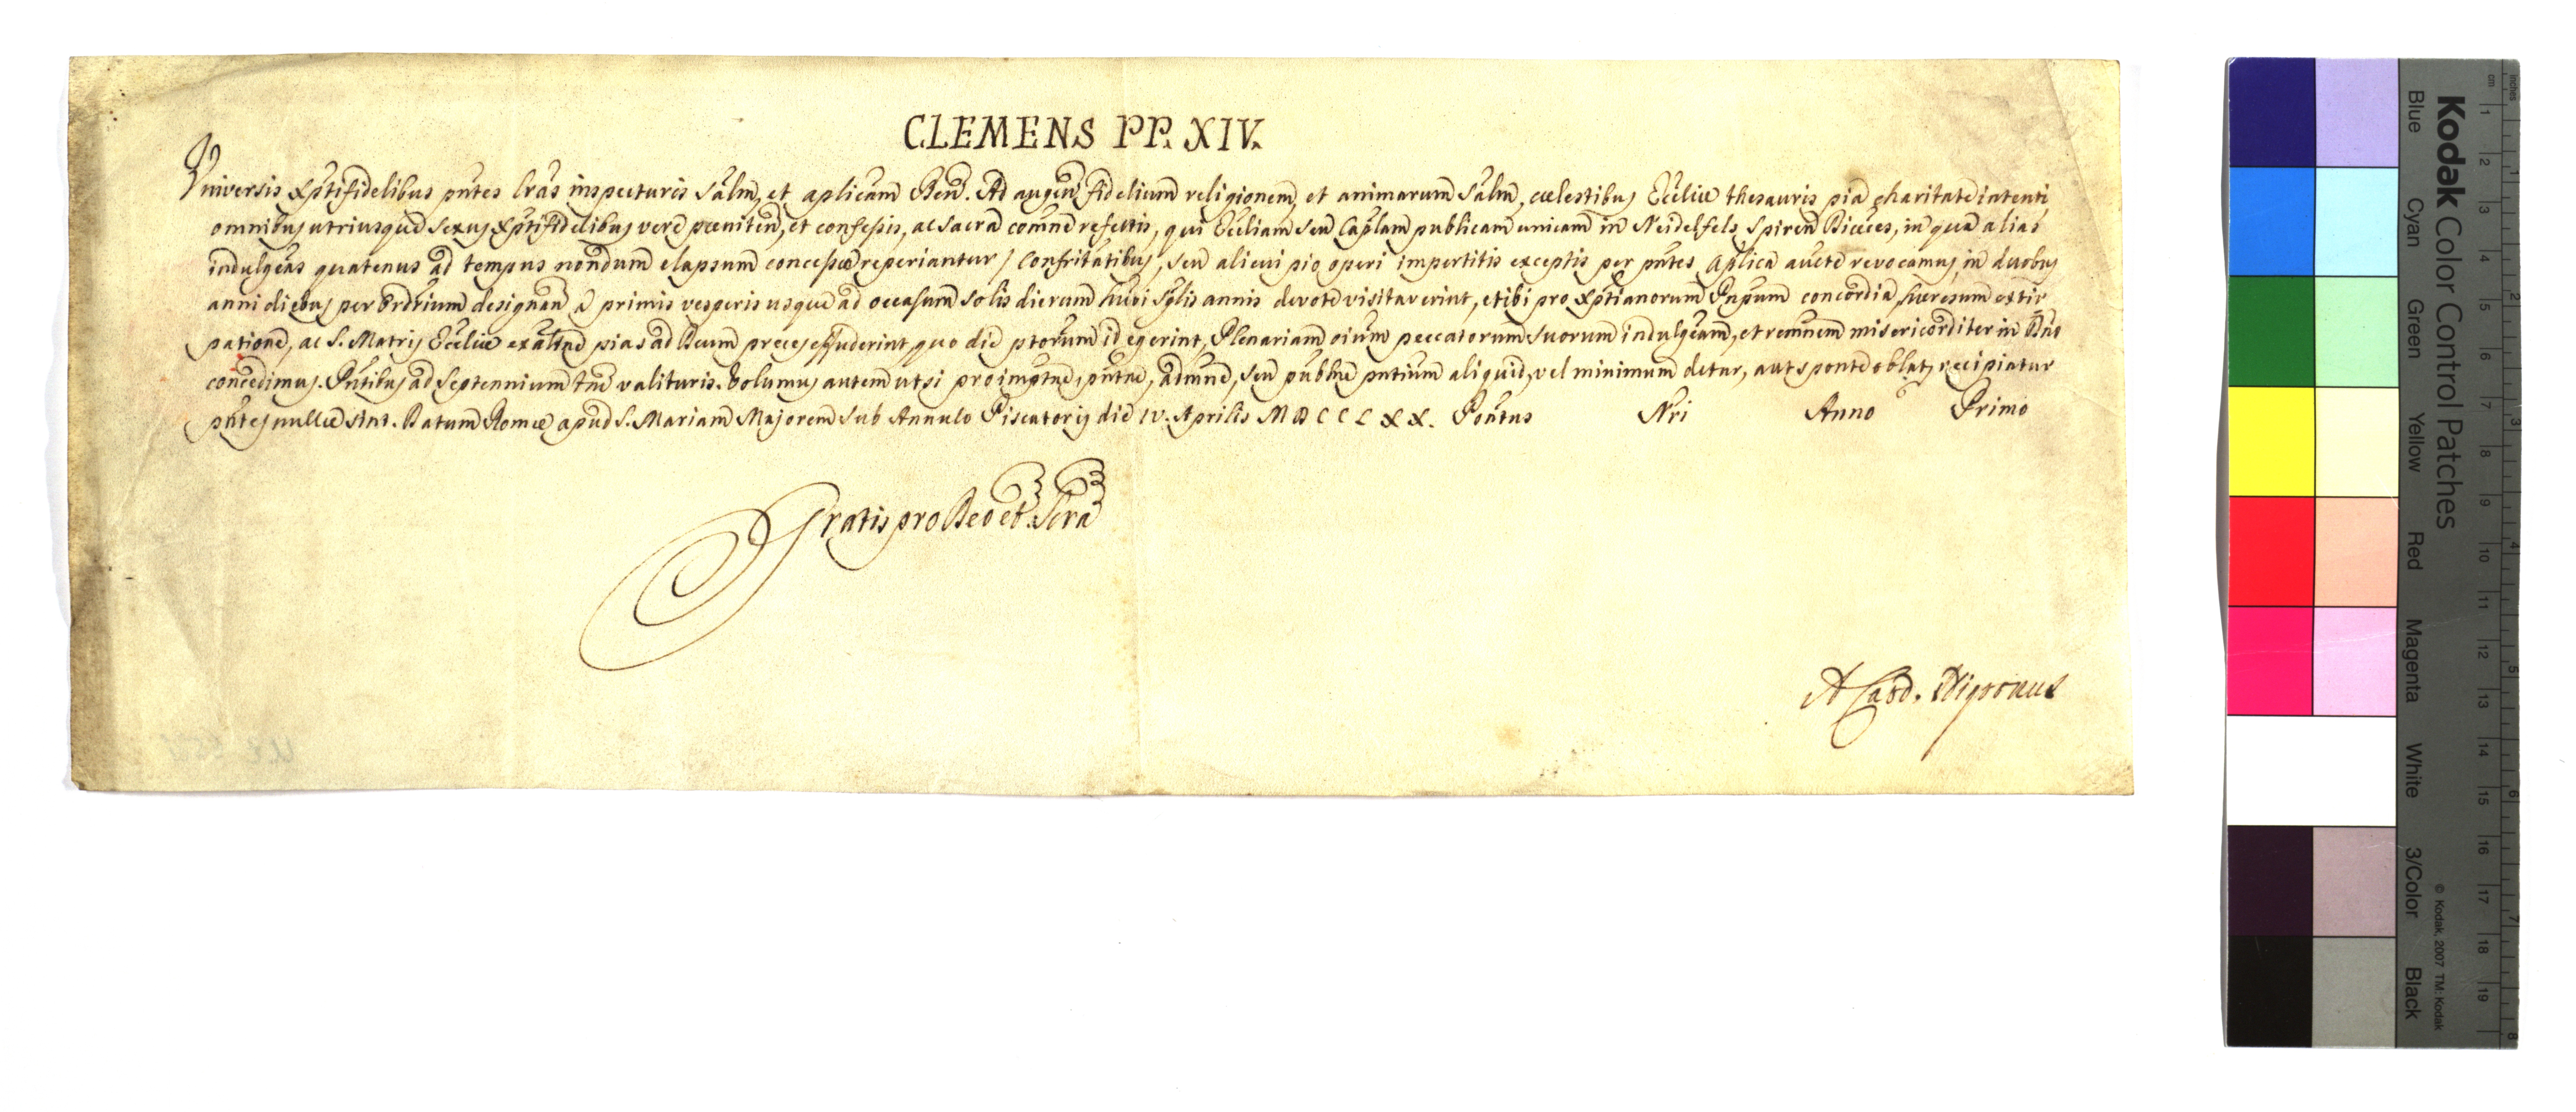 CLEMENS PP. XIV.
Universis Xptifidelibus pntes lras inspecturis Salm, et aplicam Ben. Ad augen fidelium religionem, et animarum Salm, cœlestibus Ecclie thesauris pia charitate intenti
omnibus utriusque sexus Xptifidelibus vere pœniten, et confessis, ac sacra comne refectis, qui Eccliam seu Caplam publicam unicam in Neidelfels Spiren Diœces, in qua alias
indulgeas quatenus ad tempus nondum elapsum concessæ reperiantur / Confritatibus, seu alicui pio operi impertitis exceptis per pntes Aplica aucte revocamus, in duobus
anni diebus per Ordrium designan a primis vesperis usque ad occasum Solis dierum hubi Splis annis devote visitaverint, et ibi pro Xptianorum Pnpum concordia, hæresum extir
patione, ac S. Matris Eccliæ exaltne pias ad Deum preces effuderint, quo die ptorum id egerint, Plenariam oium peccatorum suorum indulgeam, et remnem misericorditer in Dno
concedimus. Pntibus ad Septennium tne valituris. Volumus autem ut si pro impetne, pntne, admne, seu publne pntium aliquid, vel minimum detur, aut sponte oblat, recipiatur
pntes nullæ sint. Datum Romæ apud S. Mariam Majorem sub Annulo Piscatoris die IV. Aprilis MDCCLXX. Pontus Nri Anno Primo
Gratis pro Deo et Scra
A Card. Nigronus
Kodak Color Control Patches
Blue Cyan Green Yellow Red Magenta White 3/Color Black
© Kodak, 2007 TM: Kodak
cm 1 2 3 4 5 6 7 8 9 10 11 12 13 14 15 16 17 18 19
inches 1 2 3 4 5 6 7 8